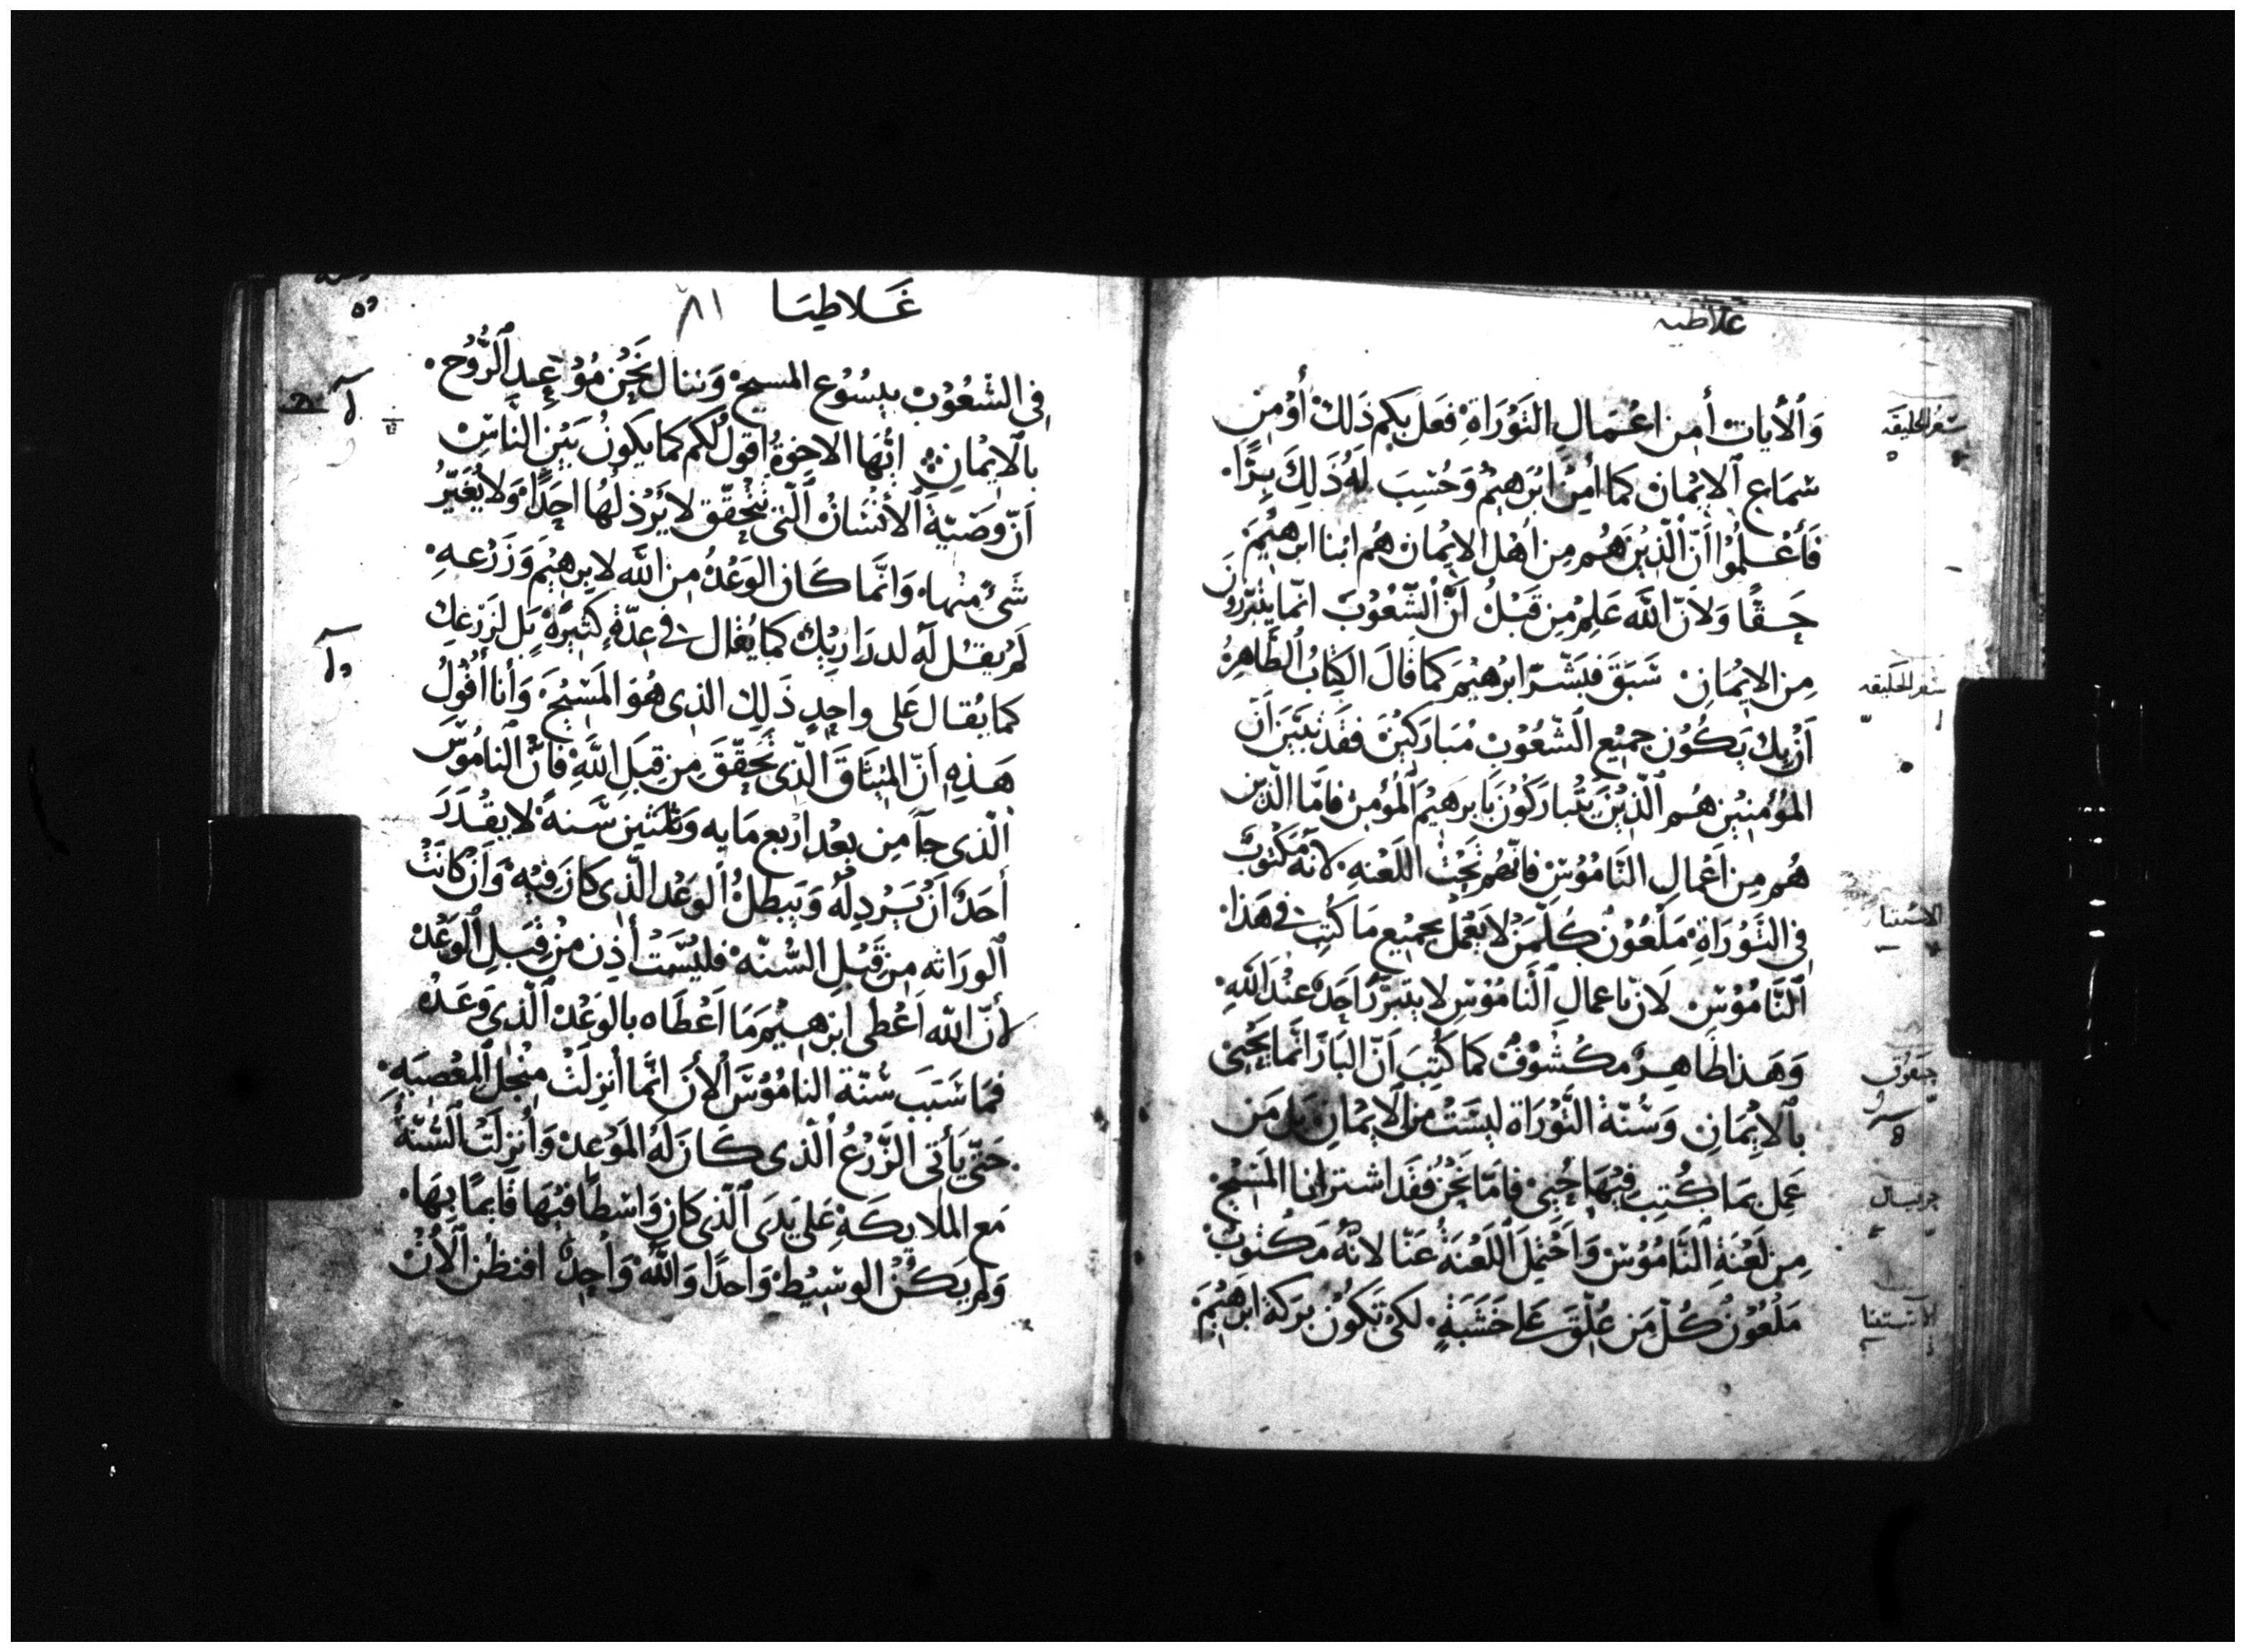 غلاطيه
وَالايات أمن اعمال التَورَاة فعَل بكم ذَلك أوْ من
سماع الايمان كما امن ابرهيم وَحُسِبَ لهُ ذَلِكَ برًا
فَأعْلموا أنّ الذين هُم من اهْل الايمان هم ابنا ابرهيم
حقًا وَلانّ الله عَلِم من قبْلُ أنّ الشعُوب انما يتبررون
من الايمان سَبَق فبشّر ابرهيم كما قالَ الكِتابُ الطاهِرُ
أنْ بك يَكُون جميع الشعُوب مُبارَكينَ فقد تبيّن أن
المؤمنين هُم الذين يتباركون بابرهيم المؤمن فامّا الذين
هُم من اعمال النّامُوس فانّهم تحت اللعنه لانه مَكتوبٌ
في التورَاة مَلْعُون كُلّ مَن لا يَعْمل بجميع ما كُتب في هَذا
النّامُوس لانّ باعمال النّامُوس لا يتبرّر احَدٌ عند الله
وَهَذا ظاهِرٌ مكشوف كما كُتِبَ انّ البارّ انما يَحْيى
بالايمانِ وَسُنّة التّورَاة ليسَتْ من الايمان بَل مَن
عَمِل بمَا كُتِب فيها حُيي فامّا نَحْنُ فقد اشترانا المَسِيح
مِن لَعْنَةِ النّامُوس وَاحتَمل اللَعْنَةَ عَنّا لانّهُ مَكتوبٌ
مَلْعُونٌ كُلّ مَن عُلّق عَلى خَشَبَةٍ لكَي تَكونَ بَركة ابرهيمَ
سفر الخليقه
سفر الخليقه
الاستثنا
حبقوق
حزقيال
الاستثنا
غَلاطيَا ٨١
في الشعُوبْ بيسُوع المسيح وَننال نَحْن مَوْعِدِ الرُّوح
بالايمانِ ايُّها الاخوةُ اقولُ لكم كما يكونُ بَيْنَ الناسْ
أنّ وصيّةَ الأنسَانْ الّتي تتحقّق لا يَرْذُلهَا احَدًا وَلا يُغَيِّرُ
شَىءٌ منها وَانّما كَان الوَعْدُ من الله لابرهيم وَزَرْعهِ
لم يقُل له لدراريك كما يُقال في عِدّةٍ كثيرَة بَل لزَرْعِك
كما يُقال عَلى واحِدٍ ذَلك الذي هُوَ المَسْيحَ وَأنا أقُولُ
هَذِهِ أنّ الميثاق الّذي تَحقّقَ من قِبَلِ اللهِ فانّ الناموسَ
الّذي جآ من بعْد ارْبع مايه وَثلثين سَنةً لا يقْدَرَ
أحَدٌ انْ يَرْدِلَهُ وَيَبطلُ الوَعْد الّذي كانَ فيه وَانْ كانَتْ
الورَاثه من قَبْلِ السُّنّه فليسَتْ أذِن مِنْ قِبَلِ الوَعْد
لأنّ الله أعْطى ابرهيم مَا اعْطاه بالوَعْد الّذي وَعَدهُ
فمَا سَبَب سُنّة النامُوسَ الأنَ انّما أنزِلَتْ من اجل المعْصيَه
حَتّى يَأتي الزّرْعُ الّذي كَان لهُ المَوْعِد وَأنزلَت السُّنّةُ
مَع الملايكَةِ عَلى يَدَى الّذي كان وَاسْطًا فيها قايمًا بهَا
وَلم يَكُن الوسِيْط وَاحدًا وَاللهُ وَاحِدٌ افنظُن الأنْ